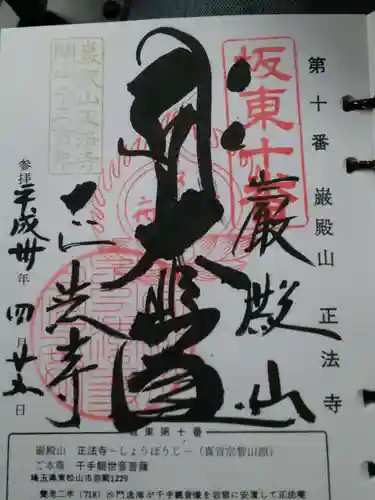 第十番 巌殿山 正法寺
坂東十番
巌殿山
大悲閣
正法寺
参拝 平成卅年 四月廿五日
坂東第十番
巌殿山 正法寺－しょうぼうじ－（真言宗智山派）
ご本尊 千手観世音菩薩
埼玉県東松山市岩殿1229
養老二年（718）沙門逸海が千手観音像を岩窟に安置して正法庵